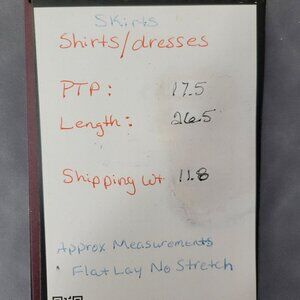 Skirts
Shirts/dresses
PTP: 17.5
Length: 26.5
Shipping wt 11.8
Approx Measurements
Flat Lay No Stretch